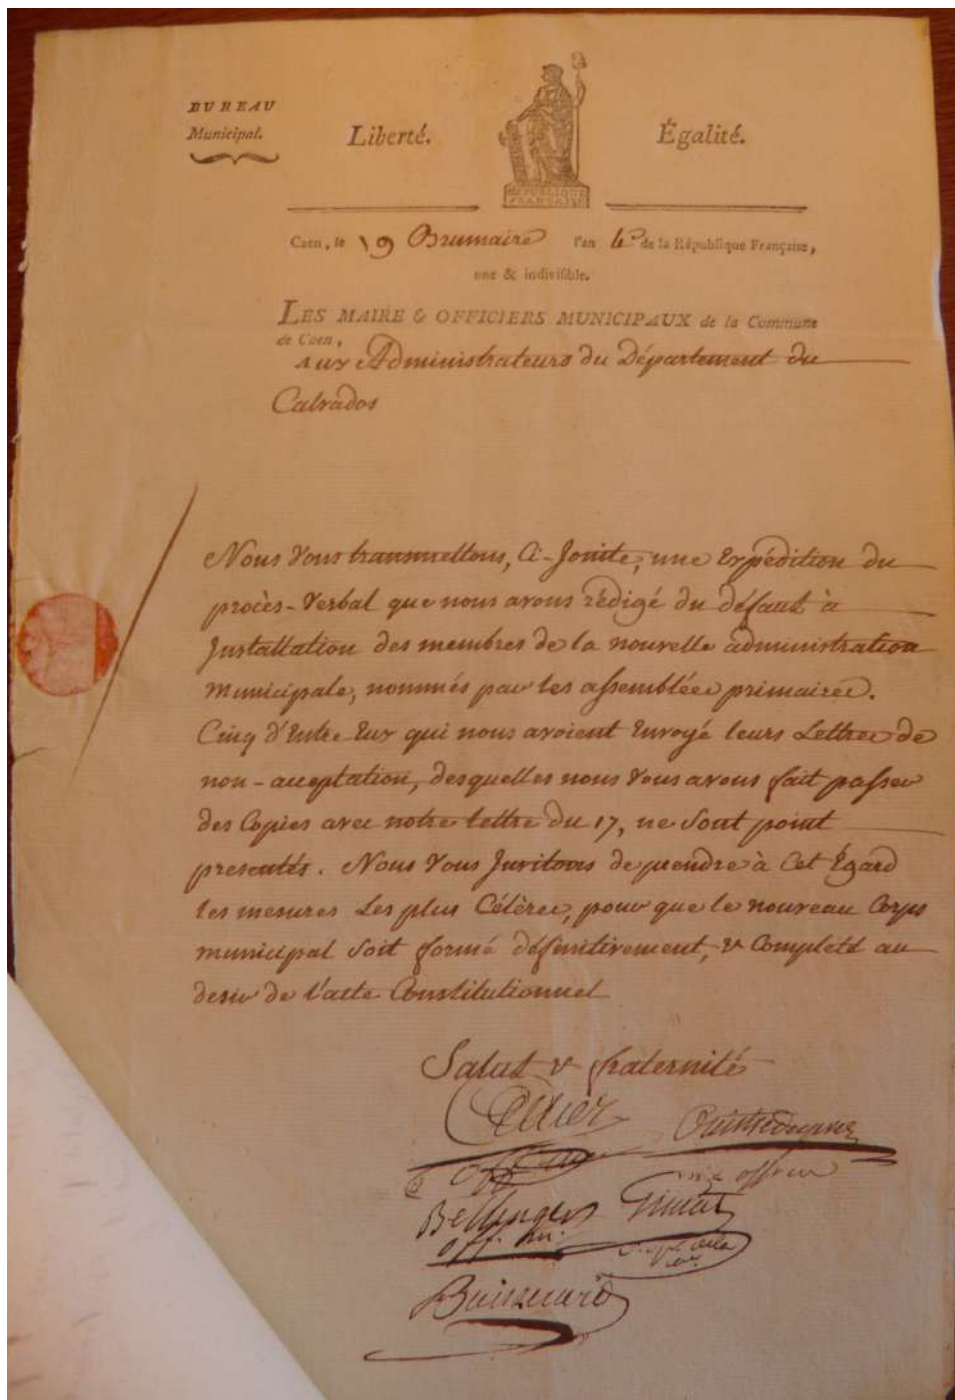 BUREAU
Municipal.
Liberté. Égalité.
RÉPUBLIQUE
FRANÇAISE
Caen, le 19 Brumaire l'an 4.e de la République Française,
une & indivisible.
LES MAIRE & OFFICIERS MUNICIPAUX de la Commune
de Caen,
Aux Administrateurs du Département du
Calvados
Nous Vous transmettons, Ci-Jointe, une Expédition du
procès-Verbal que nous avons rédigé du défaut d'
Installation des membres de la nouvelle administration
municipale, nommés par les assemblées primaires.
Cinq d'Entre Eux qui nous avoient Envoyé leurs Lettres de
non-acceptation, desquelles nous Vous avons fait passer
des Copies avec notre lettre du 17, ne Sont point
présentés. Nous Vous Invitons de prendre à Cet Égard
les mesures Les plus Célères, pour que le nouveau Corps
municipal Soit formé définitivement, & Complété au
desir de l'acte Constitutionnel
Salut & fraternité
Bellenger
off. m.